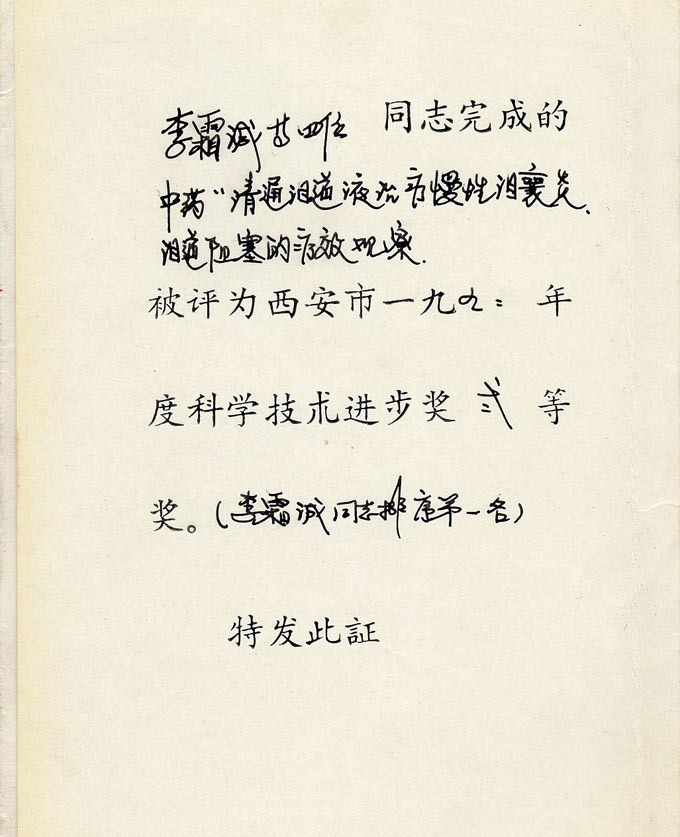 李霜诚等四位 同志完成的
中药"清通泪道液治疗慢性泪襄炎、
泪道阻塞的疗效观察.
被评为西安市一九九二 年
度科学技术进步奖 弍 等
奖。(李霜诚同志排序第一名)
特发此証